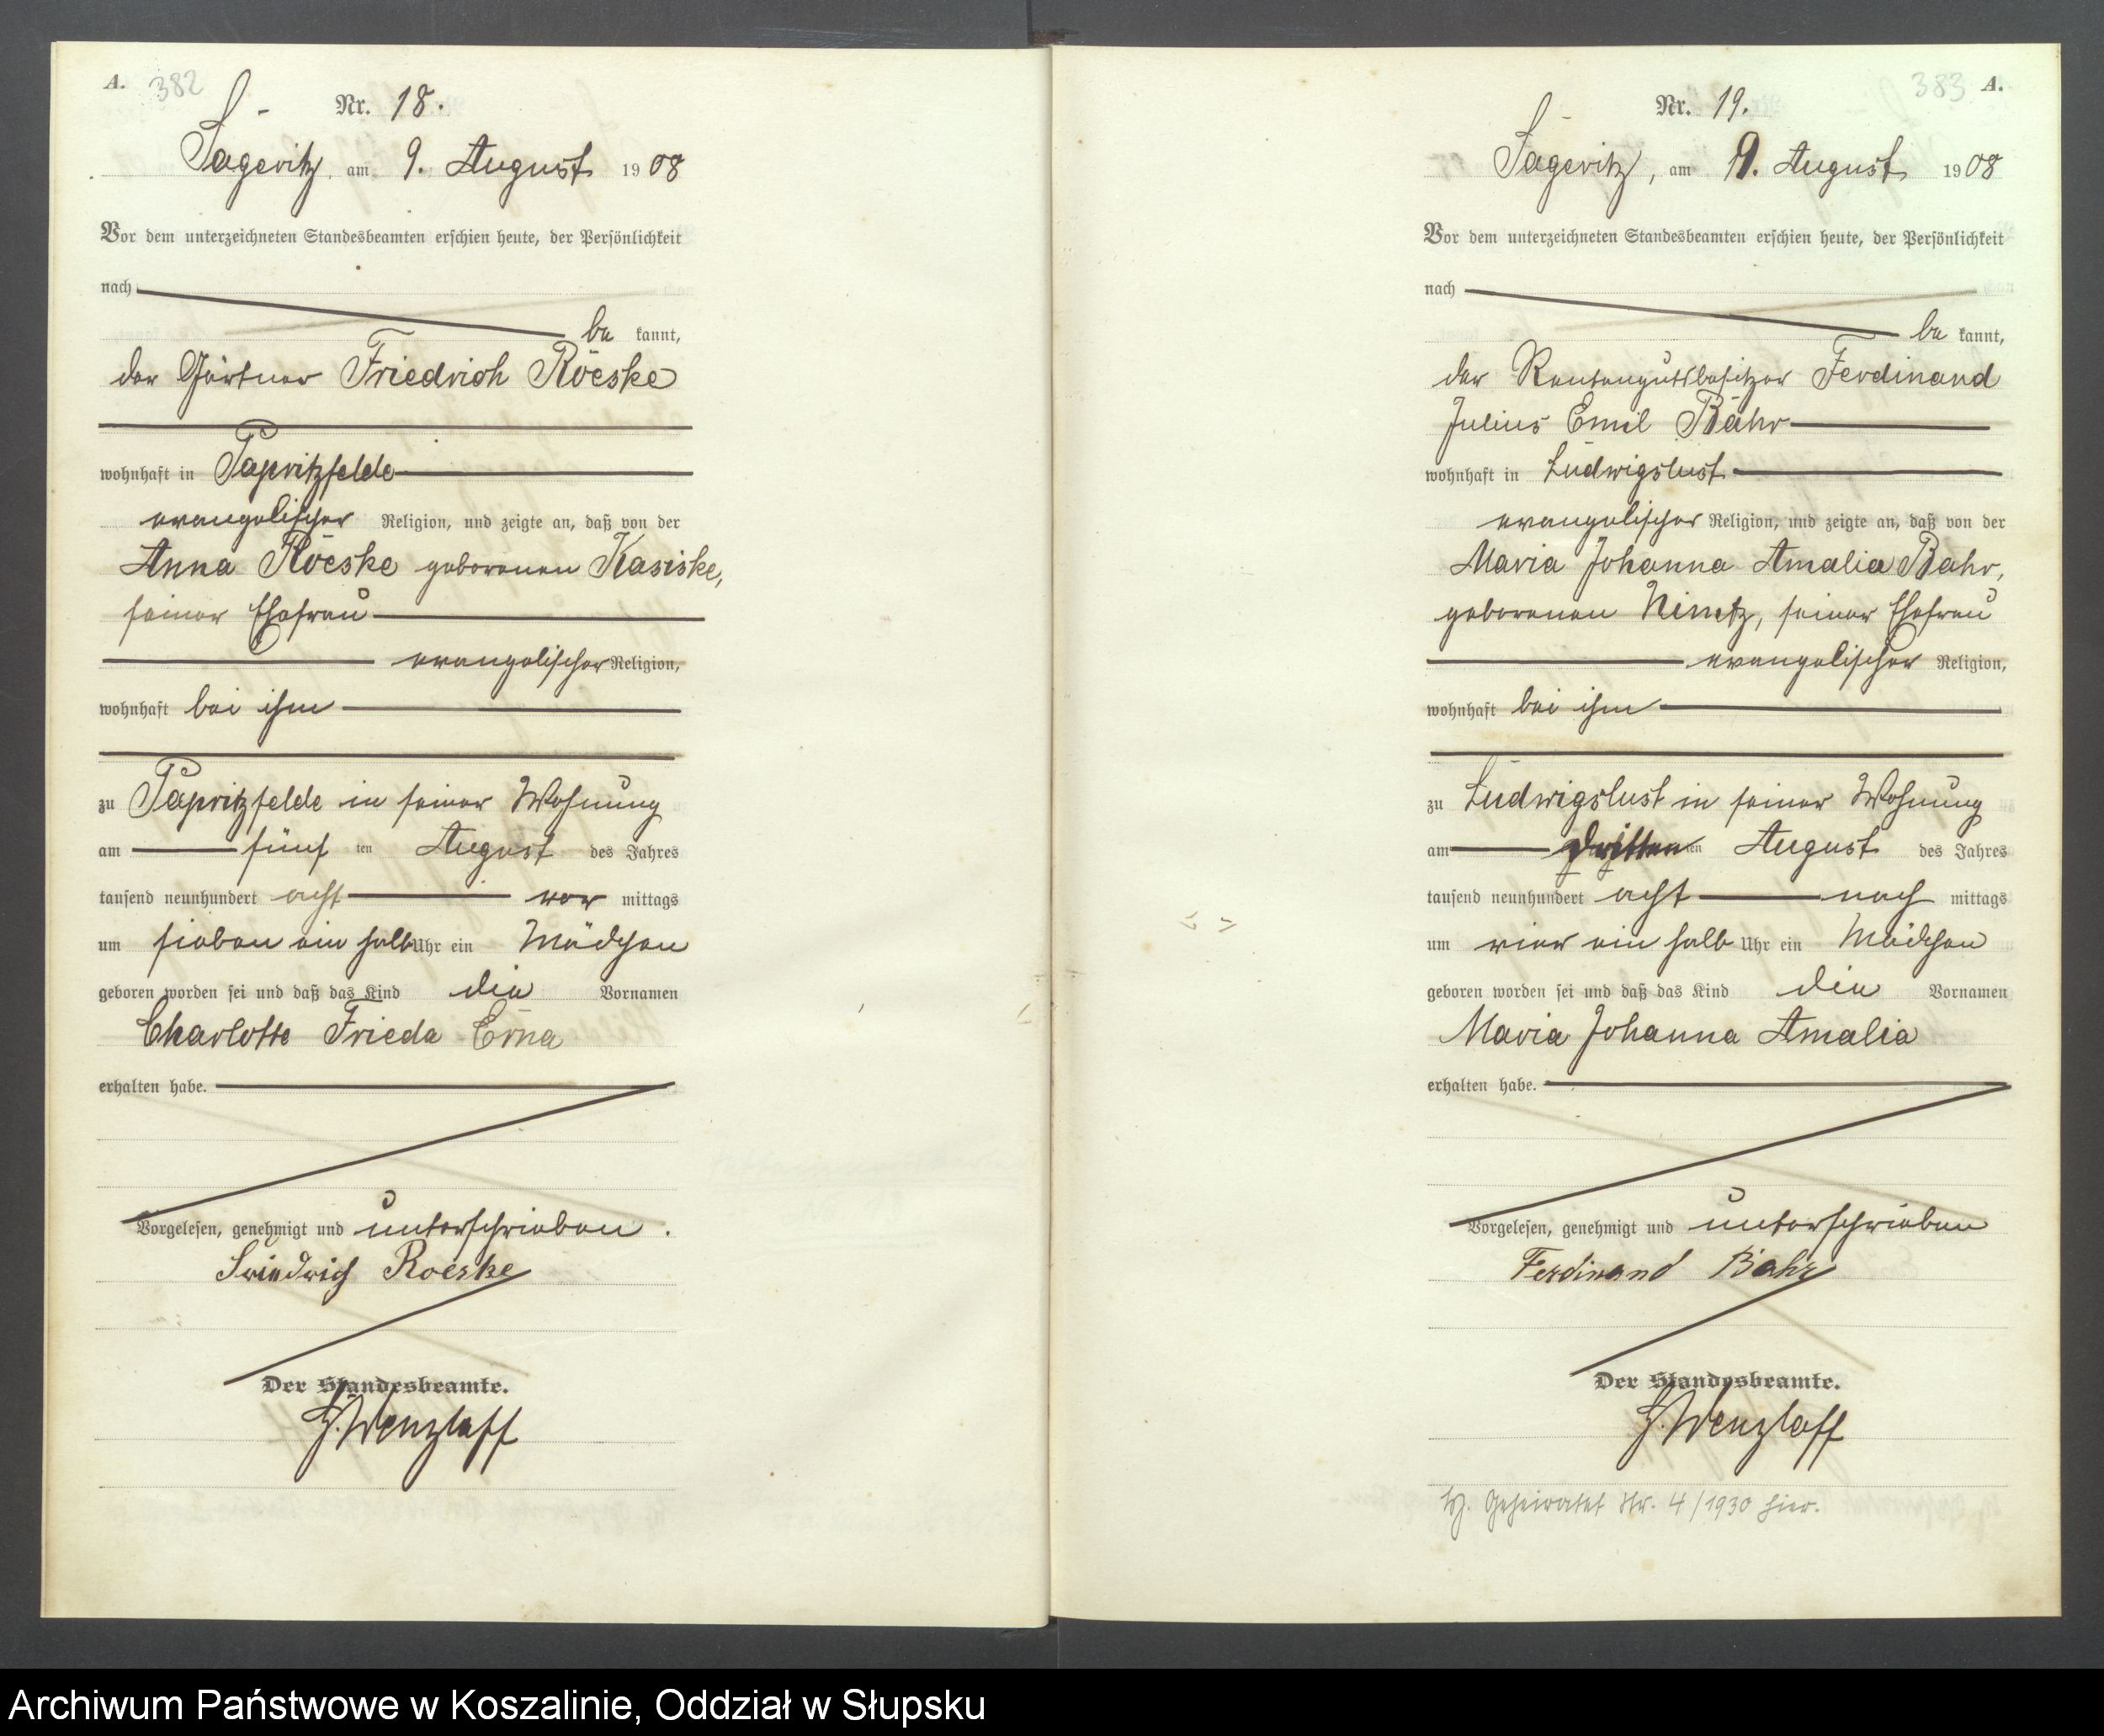 A. 382
Nr. 18.
Sageritz, am 9. August 1908
Vor dem unterzeichneten Standesbeamten erschien heute, der Persönlichkeit
nach
be kannt,
der Gärtner Friedrich Röeske
wohnhaft in Papritzfelde
evangelischer Religion, und zeigte an, daß von der
Anna Röeske geborenen Kasiske,
seiner Ehefrau
evangelischer Religion,
wohnhaft bei ihm
zu Papritzfelde in seiner Wohnung
am fünf ten August des Jahres
tausend neunhundert acht vor mittags
um sieben ein halb Uhr ein Mädchen
geboren worden sei und daß das Kind die Vornamen
Charlotte Frieda Erna
erhalten habe.
Vorgelesen, genehmigt und unterschrieben.
Friedrich Roeske
Der Standesbeamte.
H. Wenzlaff
383 A.
Nr. 19.
Sageritz, am 9. August 1908
Vor dem unterzeichneten Standesbeamten erschien heute, der Persönlichkeit
nach
be kannt,
der Rentengutsbesitzer Ferdinand
Julius Emil Bahr
wohnhaft in Ludwigslust
evangelischer Religion, und zeigte an, daß von der
Maria Johanna Amalia Bahr,
geborenen Nimtz, seiner Ehefrau
evangelischer Religion,
wohnhaft bei ihm
zu Ludwigslust in seiner Wohnung
am dritten ten August des Jahres
tausend neunhundert acht nach mittags
um vier ein halb Uhr ein Mädchen
geboren worden sei und daß das Kind die Vornamen
Maria Johanna Amalia
erhalten habe.
Vorgelesen, genehmigt und unterschrieben
Ferdinand Bahr
Der Standesbeamte.
H. Wenzlaff
Geheiratet Nr. 4/1930 hier.
Archiwum Państwowe w Koszalinie, Oddział w Słupsku